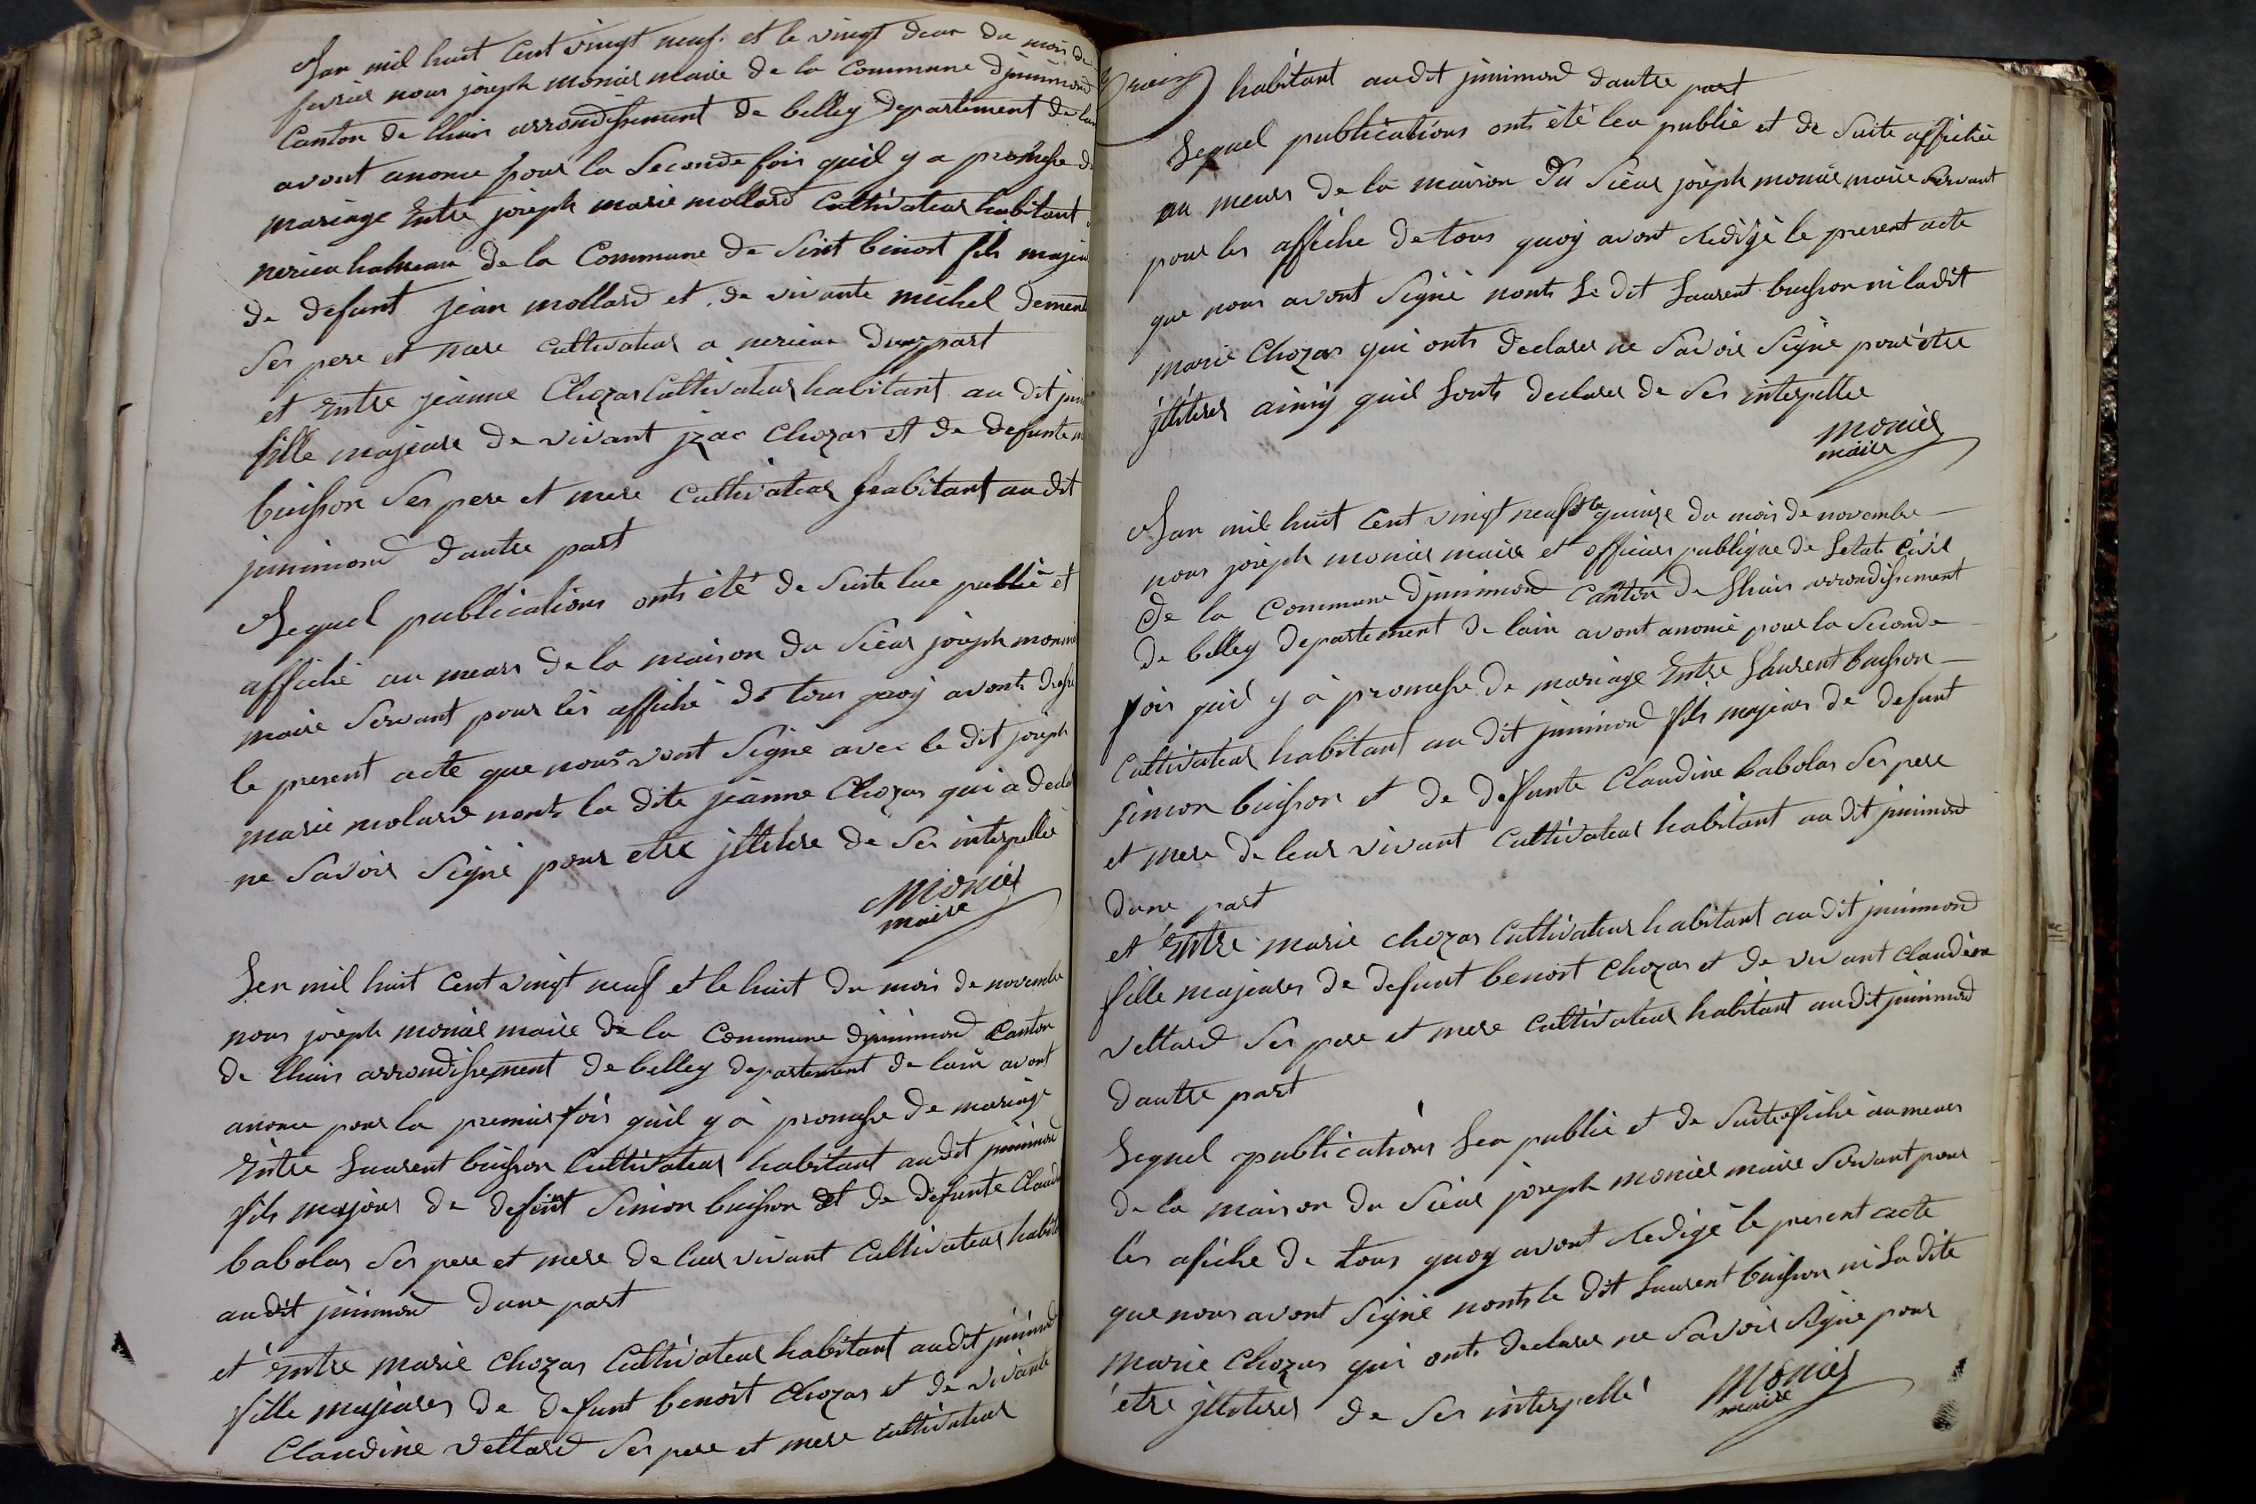 Lan mil huit Cent vingt neuf et le vingt deux du mois de
fevrier nous joseph monier maire de la Commune djnimond
Canton de lhuis arrondissement de belley departement de lain
avont anonce pour la Seconde fois quil y a promesse de
mariage Entre joseph marie mollard Cultivateur habitant a
nerieu hahmeau de la Commune de Sint binoit fils majeur
de defunt jean mollard et de vivante michel
Ses pere et mere cultivateur a nerieu dune part
et Entre jeanne Chozas Cultivateur habitant au dit
fille majeure de vivant jzac Chozas et de defunte
buisson Ses pere et mere Cultivateur habitant au dit
jnnimond dautre part
Lequel publications onts été de Suite lue publié et
affiché au meurs de la maison du Sieur joseph monnier
maire Servant pour les affiché de tous quoy avonts
le present acte que nous avont Signé avec le dit joseph
marie molard nonts la dite jeanne Chozas qui a
ne Savoir Signé pour etre jlitéré de Ses interpellé
Monier
maire
Len mil huit Cent vingt neuf et le huit du mois de novembre
nous joseph monier maire de la Commune djnnimond Canton
de lhuis arrondissement de belley departement de lain avont
anonce pour la premier fois quil y à promesse de mariage
Entre Laurent buisson Cultivateur habitant audit jnnimond
fils majeur de defunt Simon buisson et de defunte
babolas Ses pere et mere de leur vivant Cultivateur
audit jnnimond dune part
et Entre marie Chozas Cultivateur habitant audit jnnimond
fille majeures de defunt benoit Chozas et de vivante
Claudine Vettard Ses pere et mere cultivateur
habitant audit jnnimond dautre part
Lequel publications onts été leu publié et de Suite affichée
au meurs de la maison du Sieur joseph monier maire Servant
pour les affiche de tous quoy avont Redigé le present acte
que nous avont Signé nonts Le dit Laurent buisson ni ladit
marie Chozas qui onts declarer ne Savoir Signé pour être
jlitéres ainsy quil Lonts declarer de Ses interpeller
monier
maire
Lan mil huit Cent vingt neuf et le quinze du mois de novembre
nous joseph monier maire et officier publique de Letat Civil
de la Commune djnnimond Canton de Lhuis arrondissement
de belley departement de lain avont anonce pour la Seconde
fois quil y à promesse de mariage Entre Laurent buisson
Cultivateur habitant au dit jnnimond fils majeur de defunt
Simon buisson et de defunte Claudine babolas Ses pere
et mere de leur vivant Cultivateur habitant au dit jnnimond
dune part
et Entre marie chozas Cultivateur habitant audit jnnimond
fille majeures de defunt benoit Chozas et de vivant Claudine
Vettard Ses pere et mere Cultivateur habitant audit jnnimond
dautre part
Lequel publications Leu publié et de Suite afiché au meurs
de la maison du Sieur joseph monier maire Servant pour
les afiche de tous quoy avont Redigé le present acte
que nous avont Signé nonts le dit Laurent buisson ni Ladite
Marie Chozas qui onts declarer ne Savoir Signé pour
être jlitéres de Ses interpellé
Monier
maire